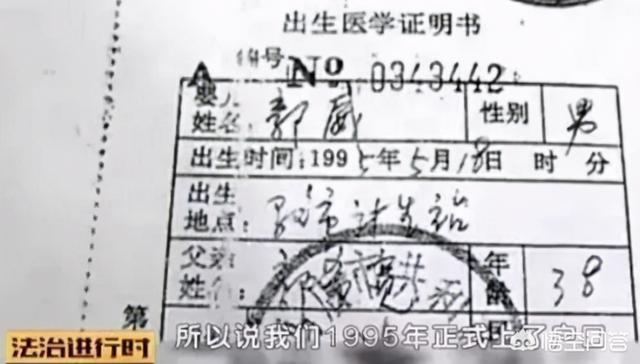 出生医学证明书
编号 A No 0343442
婴儿姓名: 郭威 性别 男
出生时间: 1995年5月18日 时 分
出生地点: 市计生站
父亲姓名: 年龄 38
第
法治进行时
所以说我们1995年正式上了户口
悟空问答